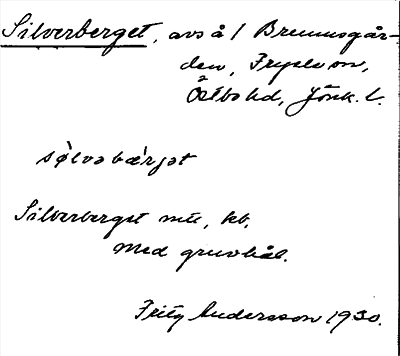 Silverberget, avs å 1 Brunnsgår-
den, Fryele sn,
Östbo hd, Jönk. l.
sølvəbærjət
Silverberget mtr, kb.
Med gruvhål.
Fritz Andersson 1930.